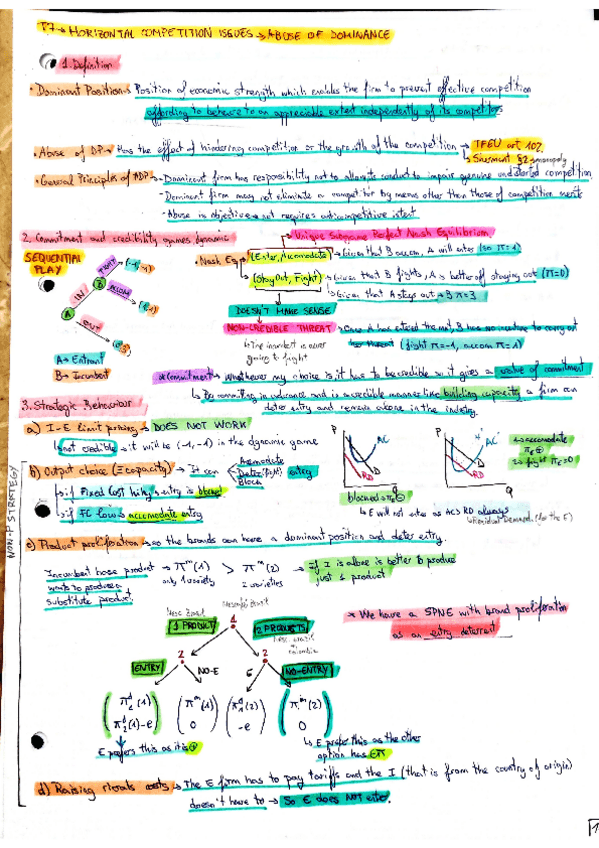 T7 → HORIZONTAL COMPETITION ISSUES → ABUSE OF DOMINANCE
1. Definition
• Dominant Position → Position of economic strength which enables the firm to prevent effective competition
affording to behave to an appreciable extent independently of its competitors
• Abuse of DP → Has the effect of hindering competition or the growth of the competition → TFEU art 102
↳ Sherment §2 → monopoly
• General Principles of ADP → Dominant firm has responsibility not to allow its conduct to impair genuine undistorted competition
Dominant firm may not eliminate a competitor by means other than those of competition merit
Abuse is objective → not requires anticompetitive intent
2. Commitment and credibility games dynamic
→ Unique Subgame Perfect Nash Equilibrium
SEQUENTIAL PLAY
• Nash Eq
(Enter, Accomodate) → Given that B accom, A will enter (so π=1)
(Stay Out, Fight) → Given that B fights, A is better off staying out (π=0)
↳ Given that A stays out → B π=3
A IN B FIGHT (-1,-1)
ACCOM (1,1)
OUT (0,3)
A → Entrant
B → Incumbent
DOESN'T MAKE SENSE
NON-CREDIBLE THREAT → Once A has entered the mkt, B has no incentive to carry out
his threat (fight π=-1, accom π=1)
↳ The incumbent is never
going to fight
* Commitment → Whichever my choice is, it have to be credible so it gives a value of commitment
↳ By commiting in advance and is a credible manner like building capacity a firm can
deter entry and remain alone in the industry.
3. Strategic Behaviour
a) I-E limit pricing → DOES NOT WORK
↳ not credible → it will be (-1,-1) in the dynamic game
NON-P STRATEGY
b) Output choice (≡ capacity) → It can
Accomodate
Deter (fight)
Block
entry
↳ if Fixed Cost high → entry is blocked
↳ if FC low → accomodate entry
P AC D RD Q
blocked → π_E ⊖
P AC D RD Q
↳ accomodate
π_E ⊕
↳ fight π_E=0
↳ E will not enter as AC > RD always
↳ Residual Demand (for the E)
c) Product proliferation → so the brands can have a dominant position and deter entry.
Incumbent hose product → π^m(1) > π^m(2) → If I is alone is better to produce
wants to produce a
only 1 variety
2 varieties
just 1 product
substitute product
1 PRODUCT 1 2 PRODUCTS
* We have a SPNE with brand proliferation
as an entry deterrent
ENTRY 2 NO-E E 2 NO-ENTRY
(π^d_I(1) π^d_2(1)-e) (π^m(1) 0) (π^d_I(2) -e) (π^m(2) 0)
E prefers this as it is ⊕
↳ E prefer this as the other
option has ⊖π
d) Raising rivals costs → The E firm has to pay tariffs and the I (that is from the country of origin)
doesn't have to → So E does NOT enter.
1